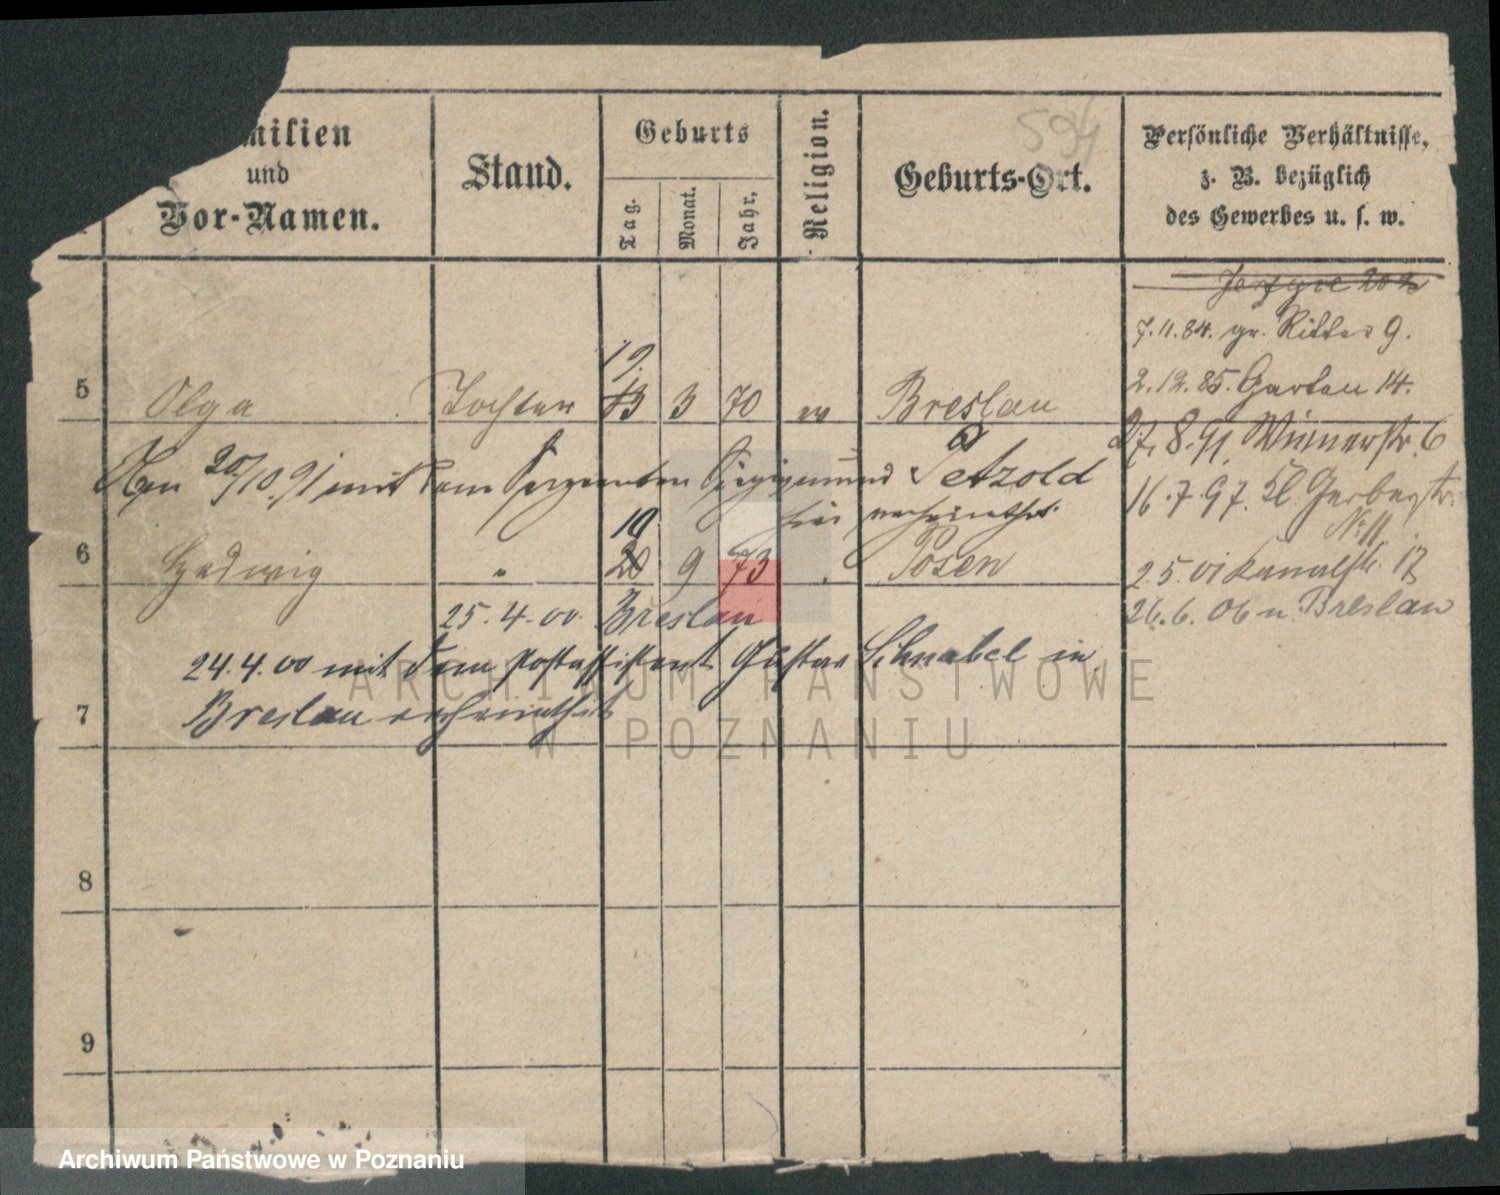 594
milien
und
Vor-Namen.
Stand.
Geburts
Tag.
Monat.
Jahr,
Religion.
Geburts-Ort.
Persönliche Verhältnisse,
z. B. bezüglich
des Gewerbes u. s. w.
7.11.84. gr. Ritter 9.
2.12.85. Garten 14.
27.8.91. Wienerstr. 6
16.7.97. Kl. Gerberstr.
No 11.
2.5.01 Kanalstr. 17
26.6.06 n. Breslau
19.
5 Olga Tochter 13 3 70 Breslau
Am 20/10.91 mit dem Sergeanten Sigismund Petzold
hier verheirathet
19
6 Hedwig " 20 9 73 Posen
25.4.00. Breslau
24.4.00 mit dem Postassistent Gustav Schnabel in
7 Breslau verheirathet
8
9
ARCHIWUM PAŃSTWOWE
W POZNANIU
Archiwum Państwowe w Poznaniu